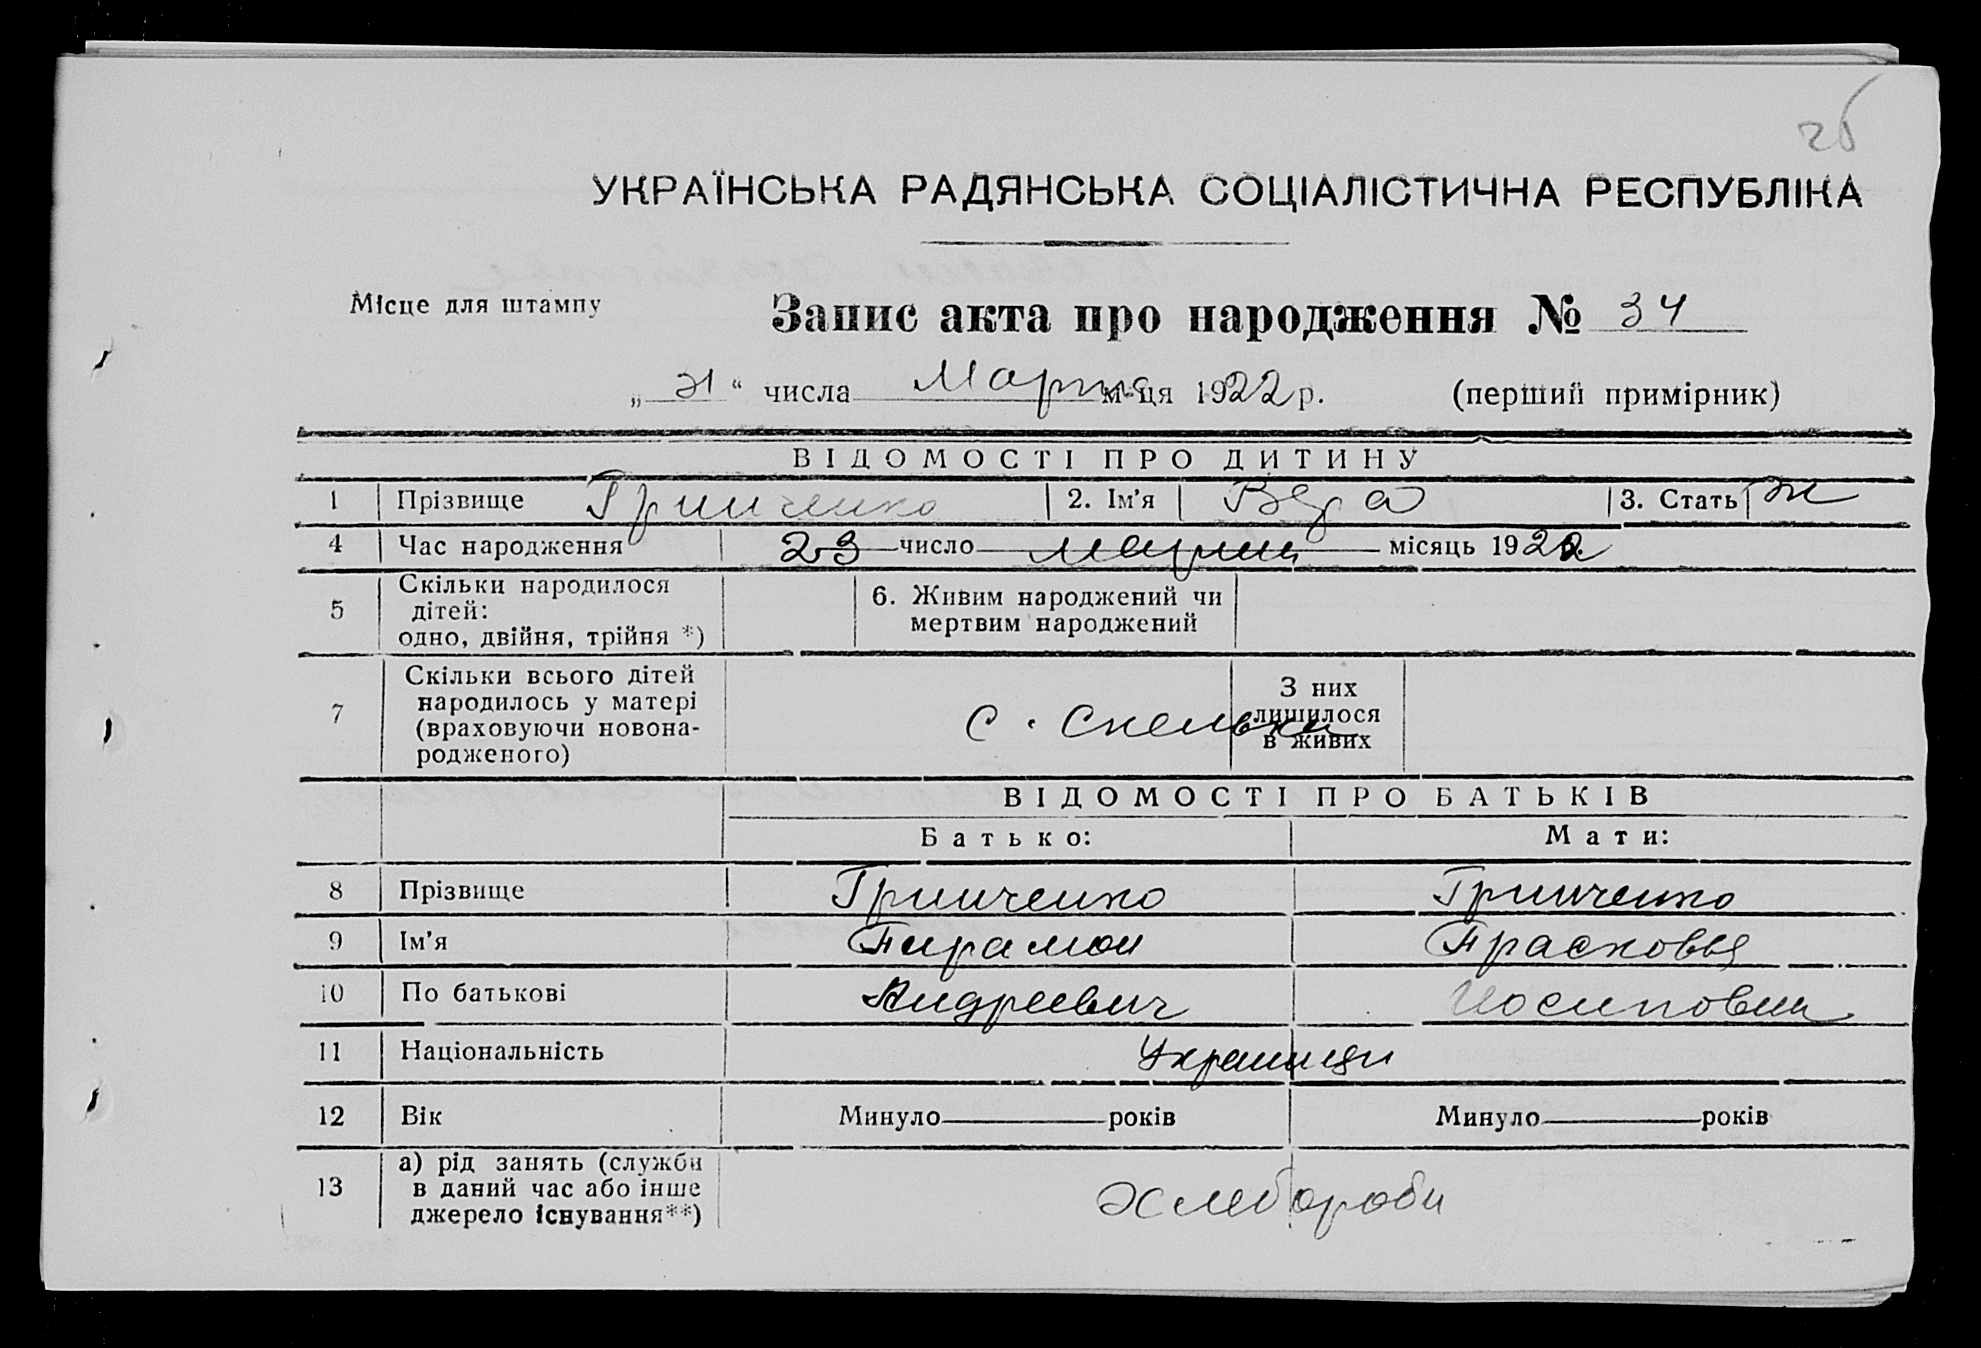 26
УКРАЇНСЬКА РАДЯНСЬКА СОЦІАЛІСТИЧНА РЕСПУБЛІКА
Місце для штампу
Запис акта про народження № 34
„31“ числа Марта м-ця 1922 р. (перший примірник)
ВІДОМОСТІ ПРО ДИТИНУ
1 Прізвище Гринченко 2. Ім'я Вера 3. Стать ж
4 Час народження 23 число марта місяць 1922
5 Скільки народилося дітей: одно, двійня, трійня *) 6. Живим народжений чи мертвим народжений
7 Скільки всього дітей народилось у матері (враховуючи новонародженого) З них лишилося в живих
с. Скельки
ВІДОМОСТІ ПРО БАТЬКІВ
Батько: Мати:
8 Прізвище Гринченко Гринченко
9 Ім'я Парамон Прасковья
10 По батькові Андреевич Иосиповна
11 Національність Украинци
12 Вік Минуло років Минуло років
13 а) рід занять (служби в даний час або інше джерело існування**) Хлебороби